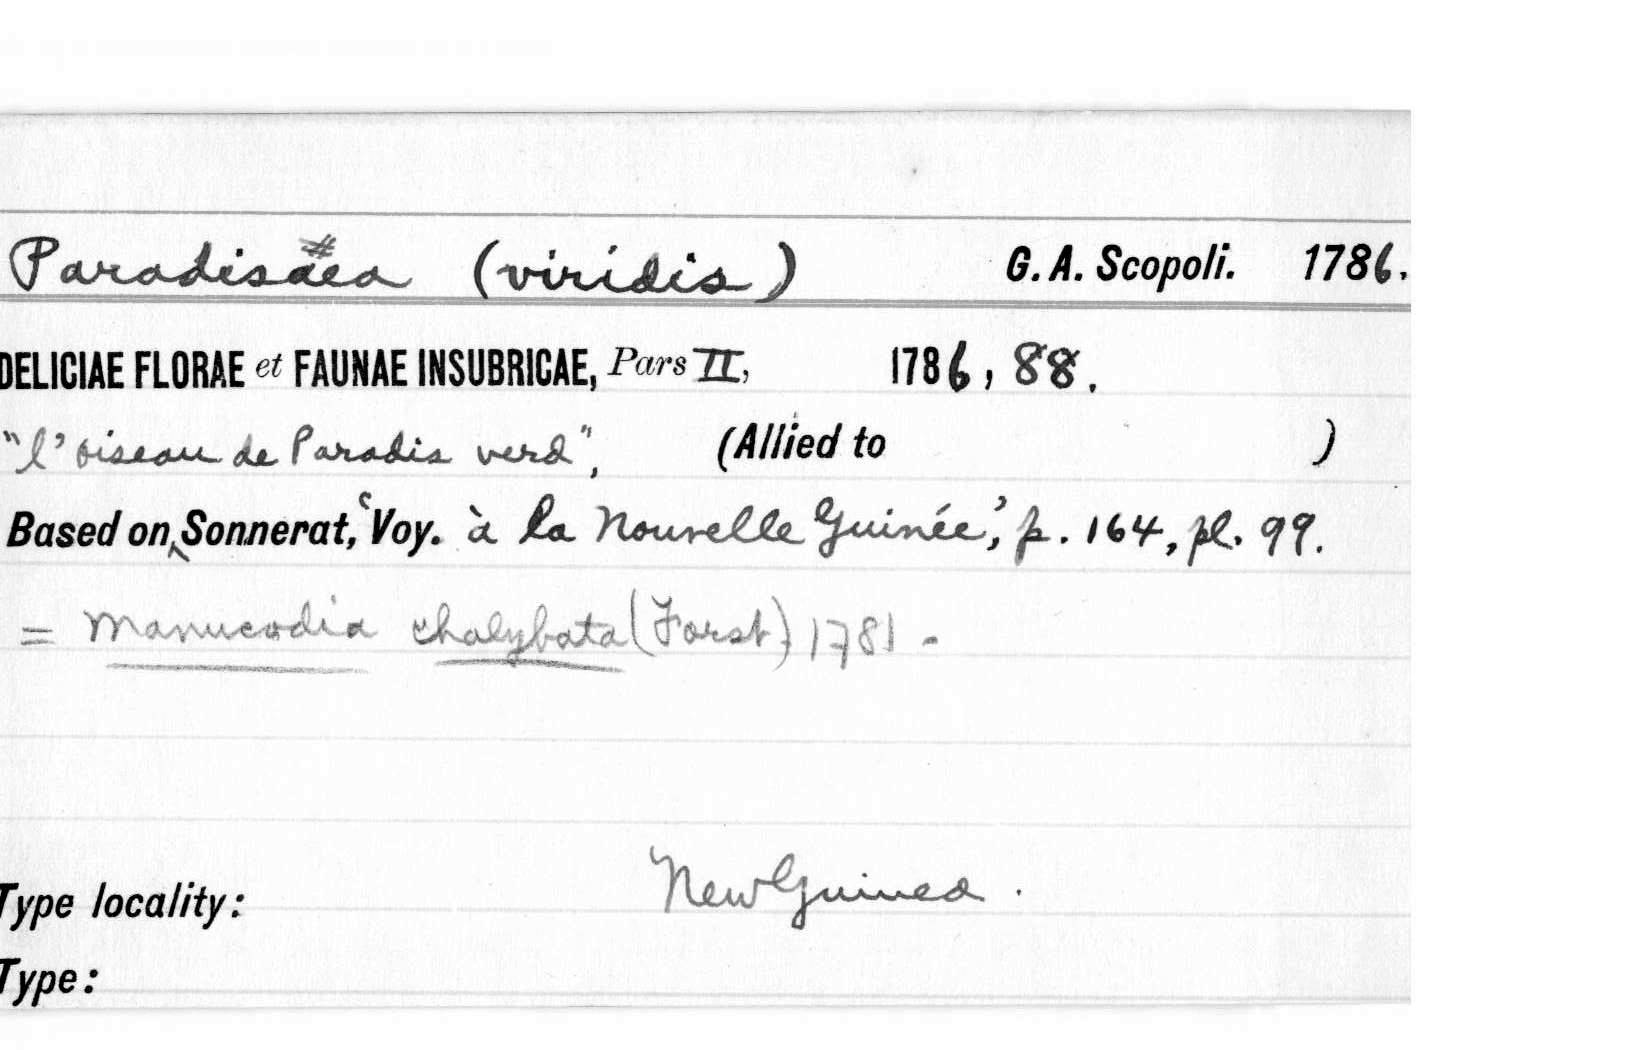 Paradisaea (viridis) G. A. Scopoli. 1786.
DELICIAE FLORAE et FAUNAE INSUBRICAE, Pars II, 1786, 88.
"l'oiseau de Paradis verd", (Allied to )
Based on, Sonnerat, 'Voy. à la Nouvelle Guinée', p. 164, pl. 99.
= Manucodia chalybata (Forst) 1781 -
Type locality: New Guinea.
Type: